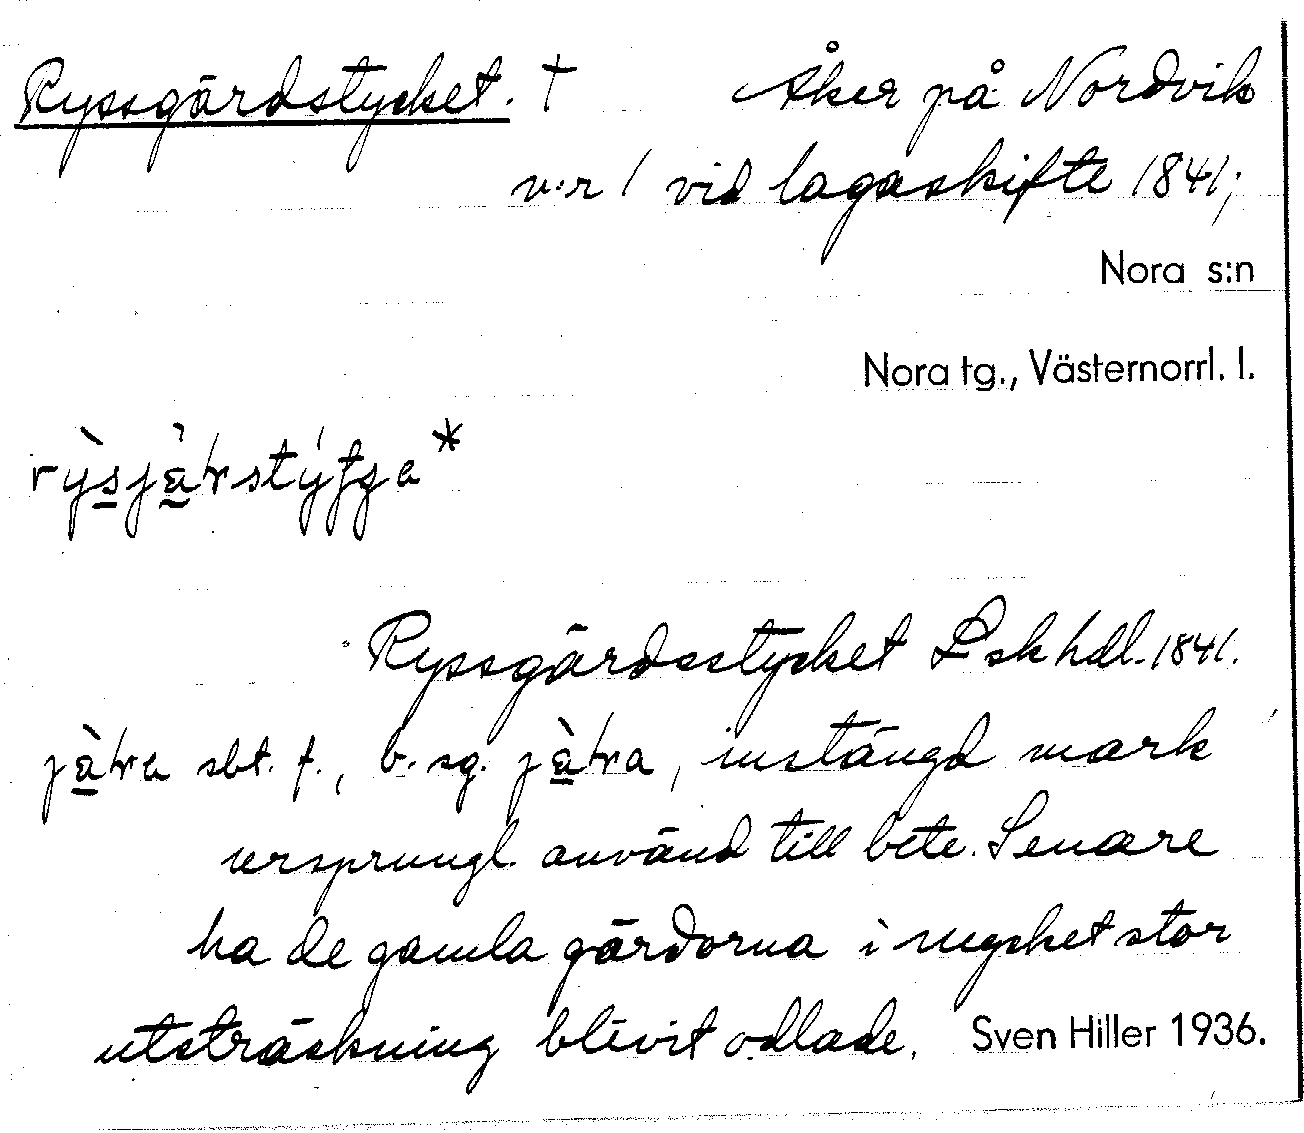 Ryssgärdstycket. † Åker på Nordvik
n:r 1 vid lagaskifte 1841;
Nora s:n
Nora tg., Västernorrl. l.
Ryssgärdsstycket Lskhdl. 1841.
sbt. f., b. sg. , instängd mark
ursprungl. använd till bete. Senare
ha de gamla gärdorna i mycket stor
utsträckning blivit odlade. Sven Hiller 1936.